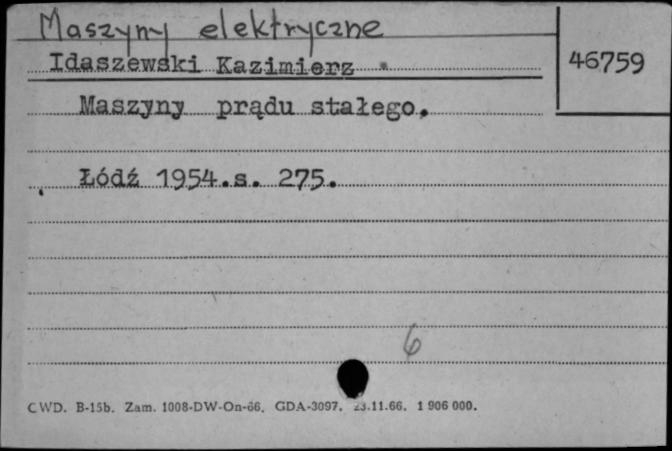 Maszyny elektryczne
Idaszewski Kazimierz
46759
Maszyny prądu stałego.
Łódź 1954.s. 275.
6
CWD. B-15b. Zam. 1008-DW-On-66. GDA-3097. 23.11.66. 1 906 000.